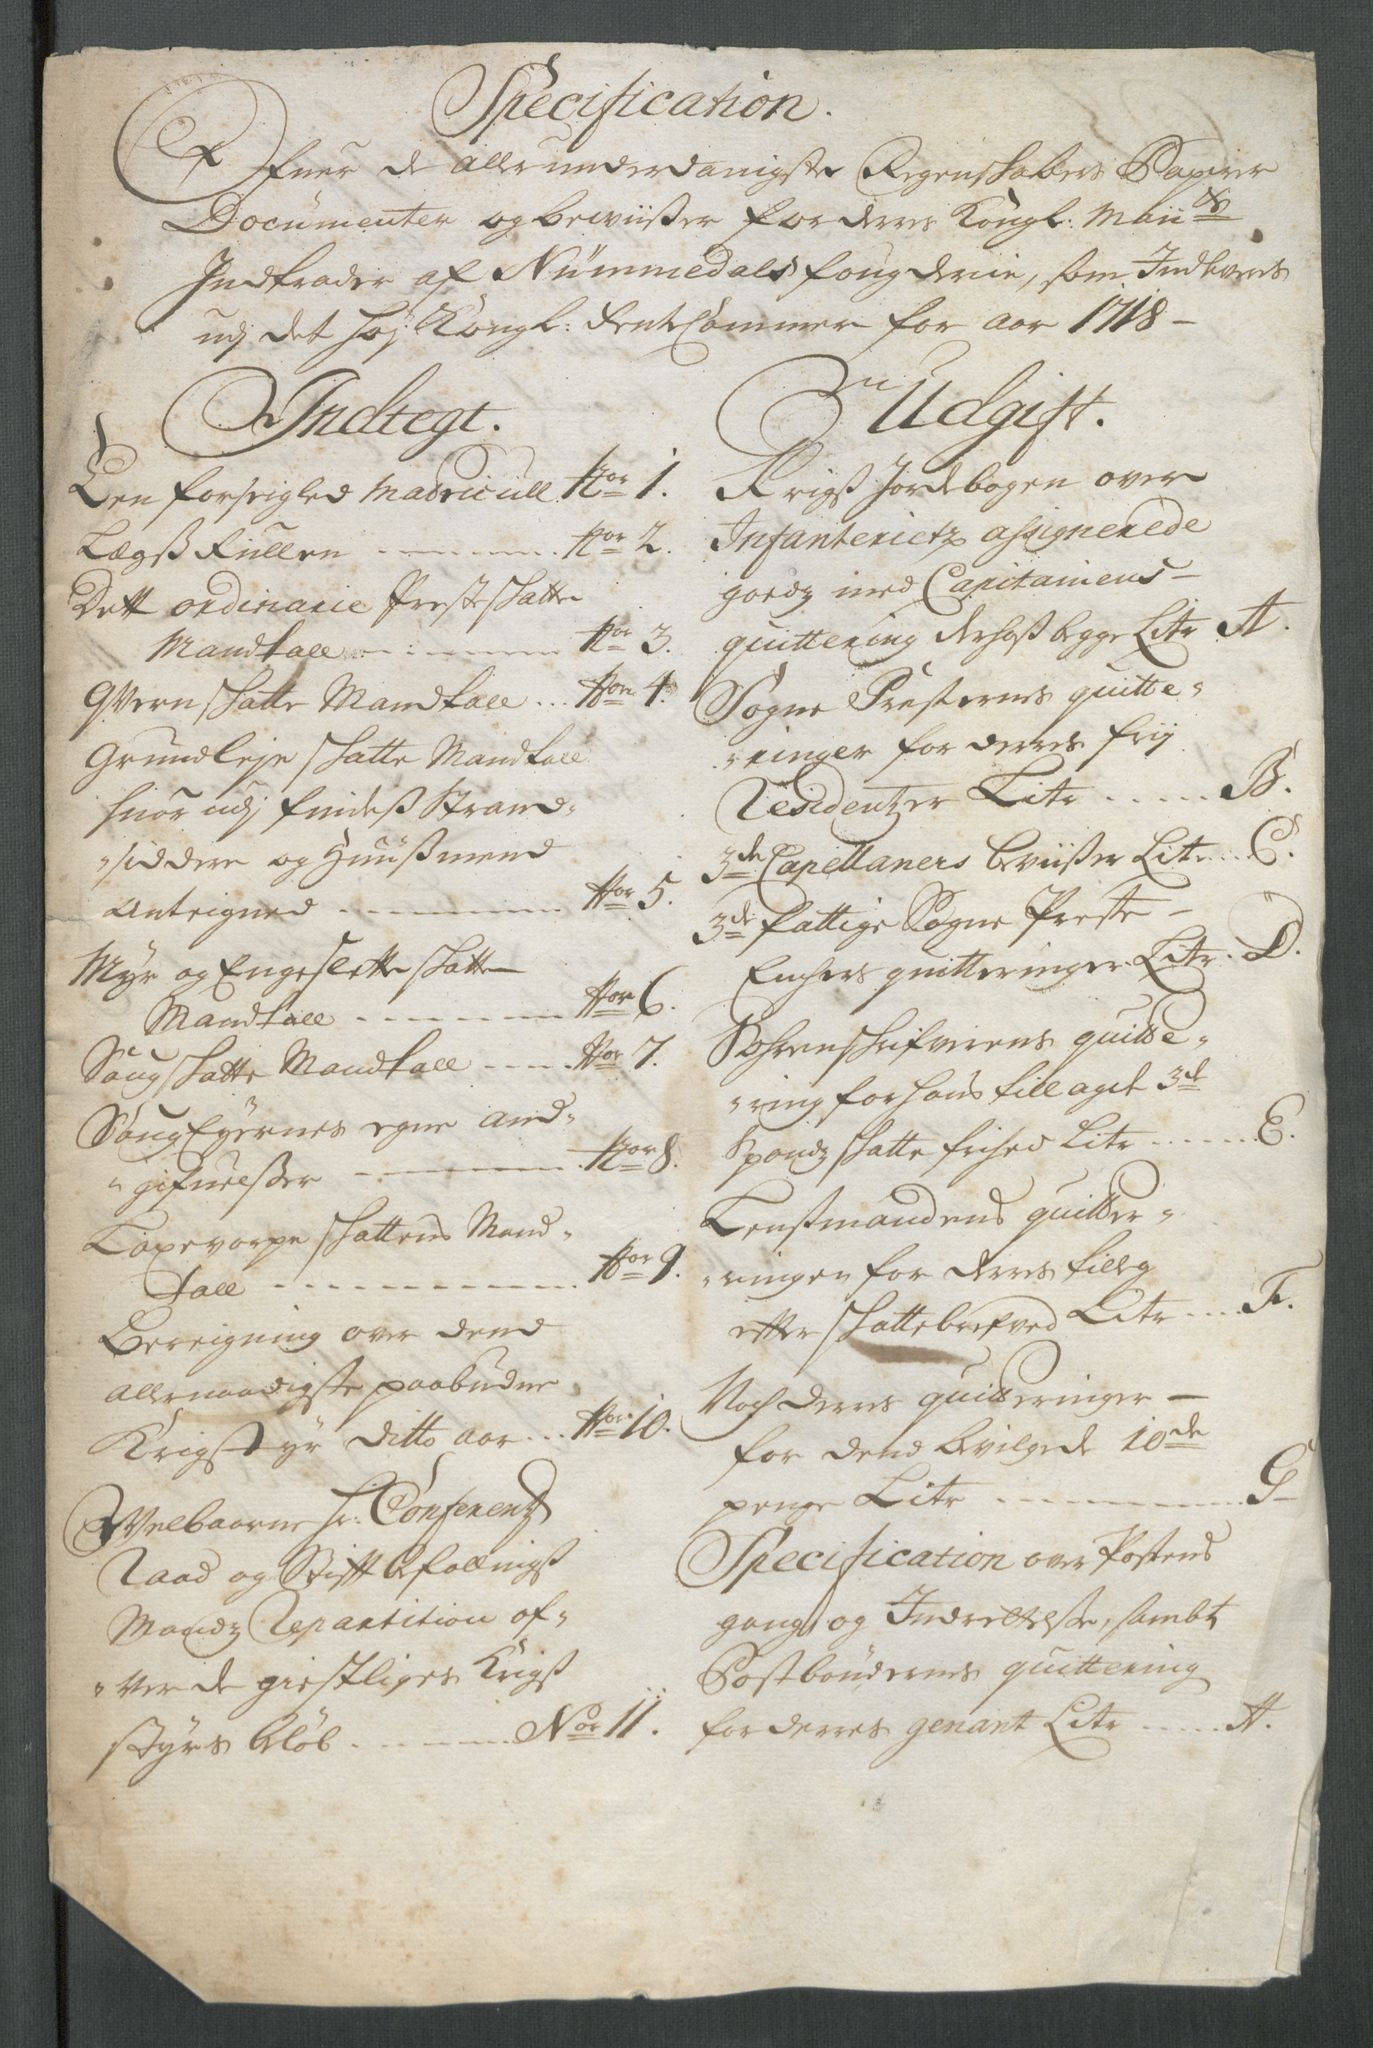 Specification.
Ofuer de allerunderdanigste Regenskabers Papirer
Documenter og beviißer for deres Kongl: Maii<sup>ts</sup>
Indtrader af Nummedals fougderie, som Indleveres
udj det høj Kongl: RenteCammer for aar 1718 –
Indtegt.
Een forseigled Matricull Nor 1.
Lægß Rullen ........ Nor 2.
Dett ordinarie Presteskatte
Mandtall ........ Nor 3.
Qvernskatte Mandtall ... Nor 4.
Grundleje skatte Mandtall
huorudj findeß Strand-
-siddere og Huußmend
Anteigned ........ Nor 5.
Myr og Engeslette skatte
Mandtall ........ Nor 6.
Saugskatte Mandtall .... Nor 7.
SaugEyernes egne and-
-gifuelßer ........ Nor 8.
Toxevorpe skattens Mand-
tall ........ Nor 9.
Bereigning over dend
allernaadigste paabudne
Krigstyr ditto aar ... Nor 10.
Velbaarne hr: Conferentz
Raad og Stifft Befallingß
Mandz Repartition of-
-ver de giestliges Krigß
styrs bløb ........ Nor 11.
Udgift.
Krigß Jordebogen over
Infanterietz assignerede
godz med Capitainens –
quittering derhoß begge Litr A.
Sogne Presternes quitte-
-ringer for deres frij
Residentzer Litr ..... B.
3de Capellaners beviißer Litr ... C.
3de fattige Sogne Preste –
Enchers quitteringer Litr. D.
Sorenschrifverens quitte-
-ring for hans tillagt 3de
Spandz skatte frihed Litr ...... E.
Lensßmandens quitter-
-ringer for deres tillæg
etter skattebrefved Litr ... F.
Noch deres quitteringer –
for dend bevilgede 10de
penge Litr ........ G –
Specification over Postens
gang og Indrettelse, sambt
Postbøndernes quittering
for deres genant Litr ..... H.